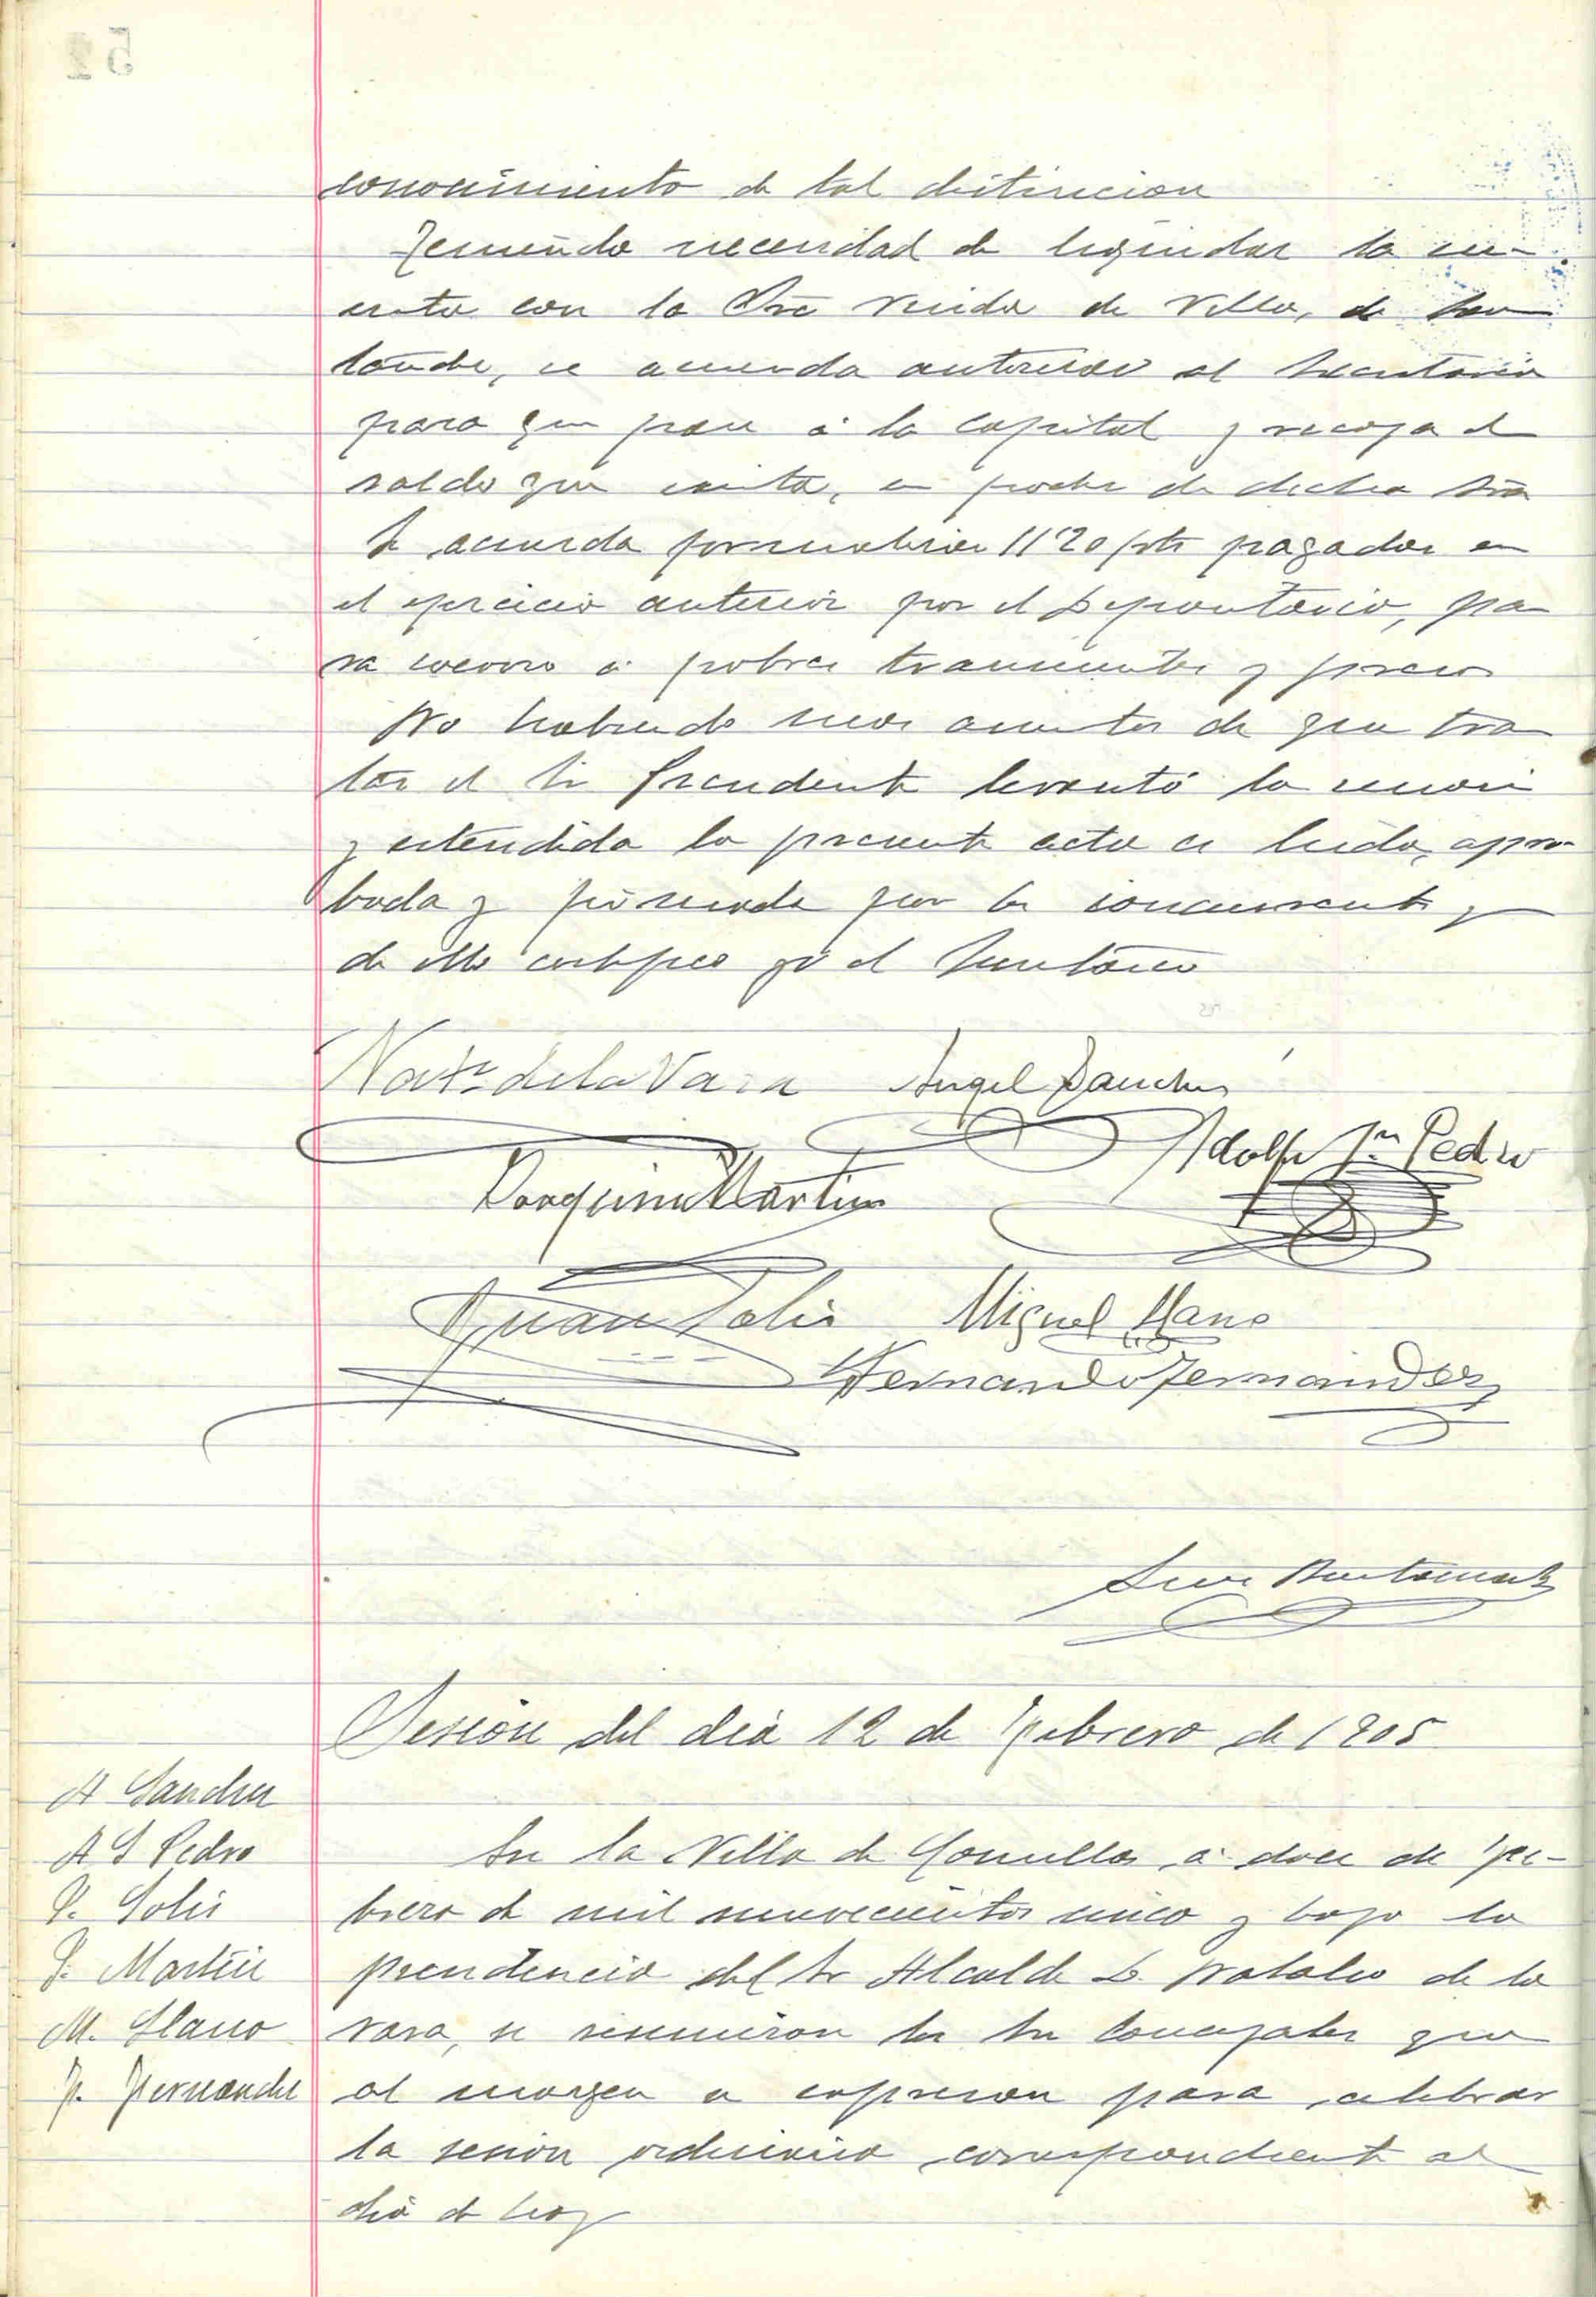 conocimiento de tal distincion
Teniendo necesidad de liquidar la cu-
enta con la Sra Viuda de Villa, de San
tander, se acuerda autorizar al Secretario
para que pase á la capital y recoja el
saldo que exista, en poder de dicha Sra
Se acuerda formalizar 11'20 pts pagadas en
el ejercicio anterior por el Depositario, pa
ra socorro á pobres transeuntes y presos
No habiendo mas asuntos de que tra
tar el Sr Presidente levantó la sesion
y estendida la presente acta es leida, apro-
bada y firmada por los concurrentes y
de ello certifico yo el Secretario
Nat.º de la Vara Angel Sanchez
Adolfo Sn Pedro
Joaquin Martin
Juan Solis Miguel Llano
Fernando Fernandez
Sesion del dia 12 de Febrero de 1905
A Sanchez
A S Pedro
J. Solis
J. Martin
M. Llano
F. Fernandez
En la Villa de Comillas á doce de Fe-
brero de mil novecientos cinco y bajo la
presidencia del Sr Alcalde D. Natalio de la
Vara, se reunieron los Sres Concejales que
al margen se expresan para celebrar
la sesion ordinaria correspondiente al
dia de hoy